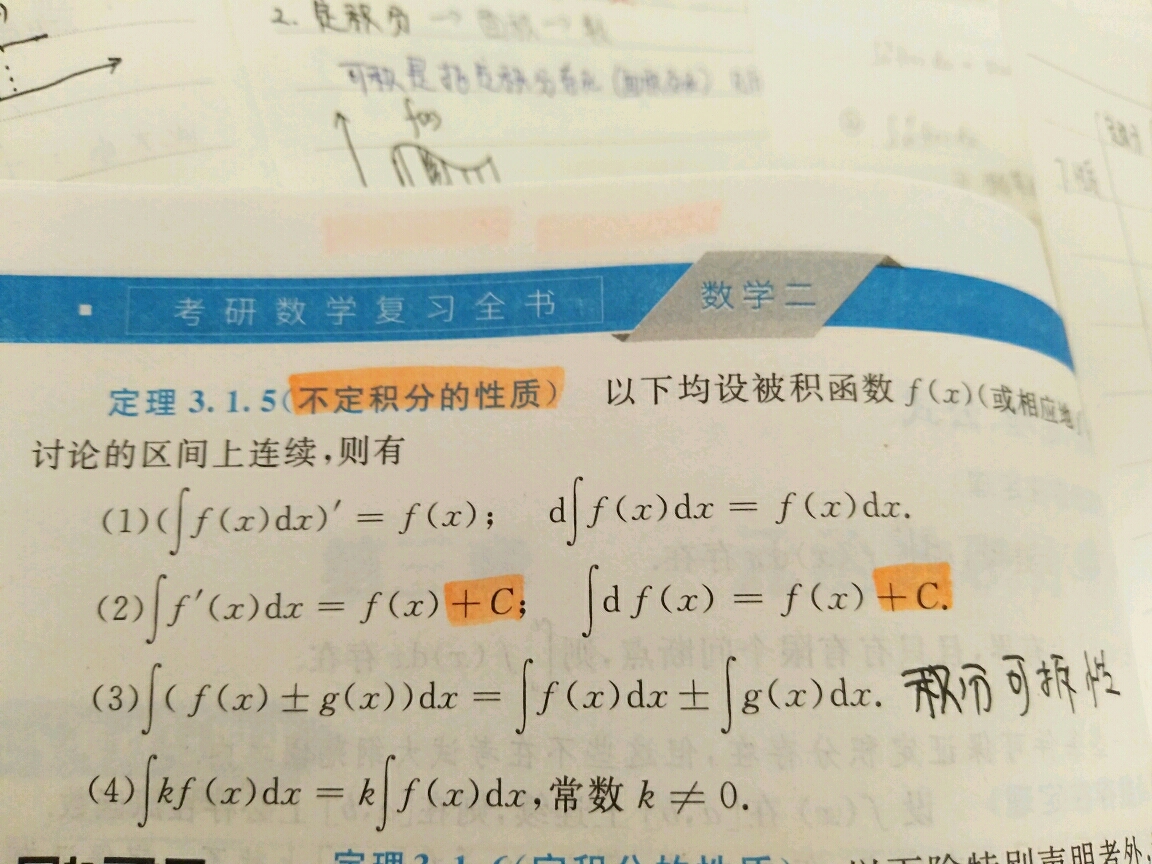 2. 定积分 → 面积 → 数
f(x)
考研数学复习全书
数学二
定理 3.1.5(不定积分的性质) 以下均设被积函数 f(x)(或相应地
讨论的区间上连续,则有
(1)(∫f(x)dx)′ = f(x); d∫f(x)dx = f(x)dx.
(2)∫f′(x)dx = f(x)+C; ∫df(x) = f(x)+C.
(3)∫(f(x)±g(x))dx = ∫f(x)dx±∫g(x)dx. 积分可拆性
(4)∫kf(x)dx = k∫f(x)dx,常数 k ≠ 0.
定理 3.1.6(定积分的性质) 以下除特别声明者外,